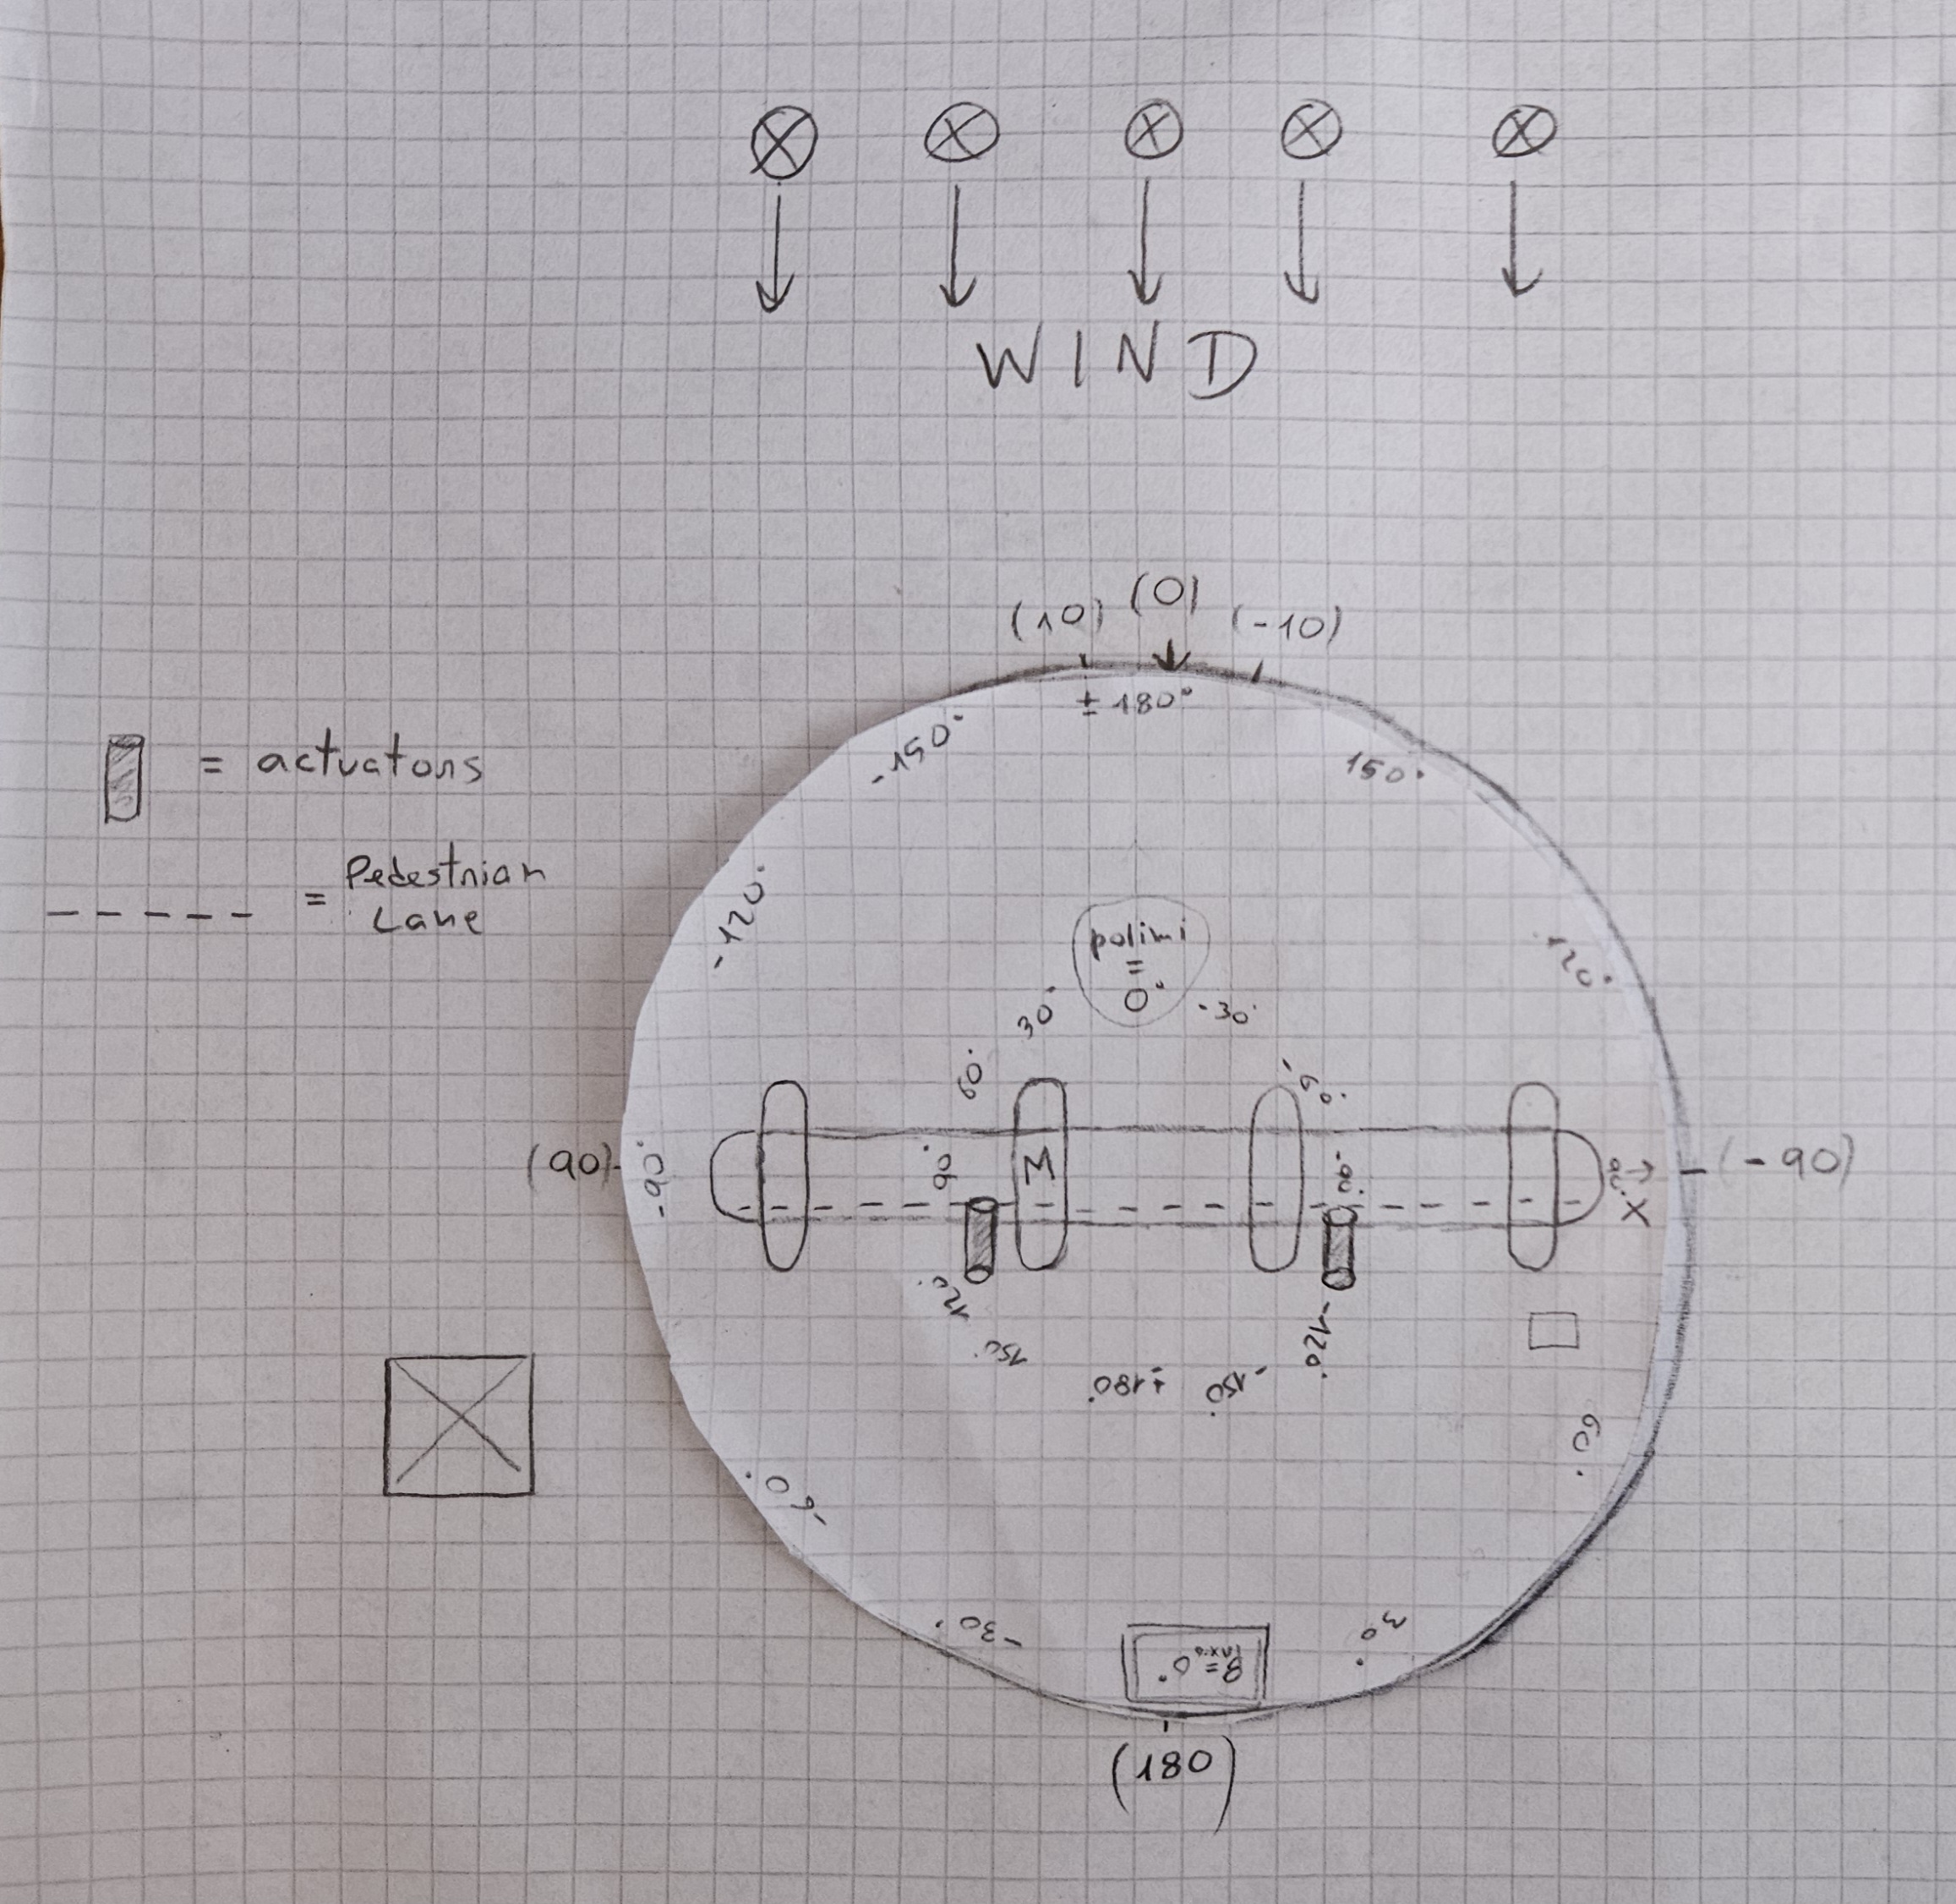 WIND
(0)
(10)
(-10)
± 180°
-150°
150°
= actuators
= Pedestrian
Lane
-120°
120°
polimi
=
0°
30°
-30°
60°
-60°
(90)
-90°
90°
M
-90°
90°
X
(-90)
120°
-120°
150°
±180°
-150°
-60°
60°
-30°
30°
(180)